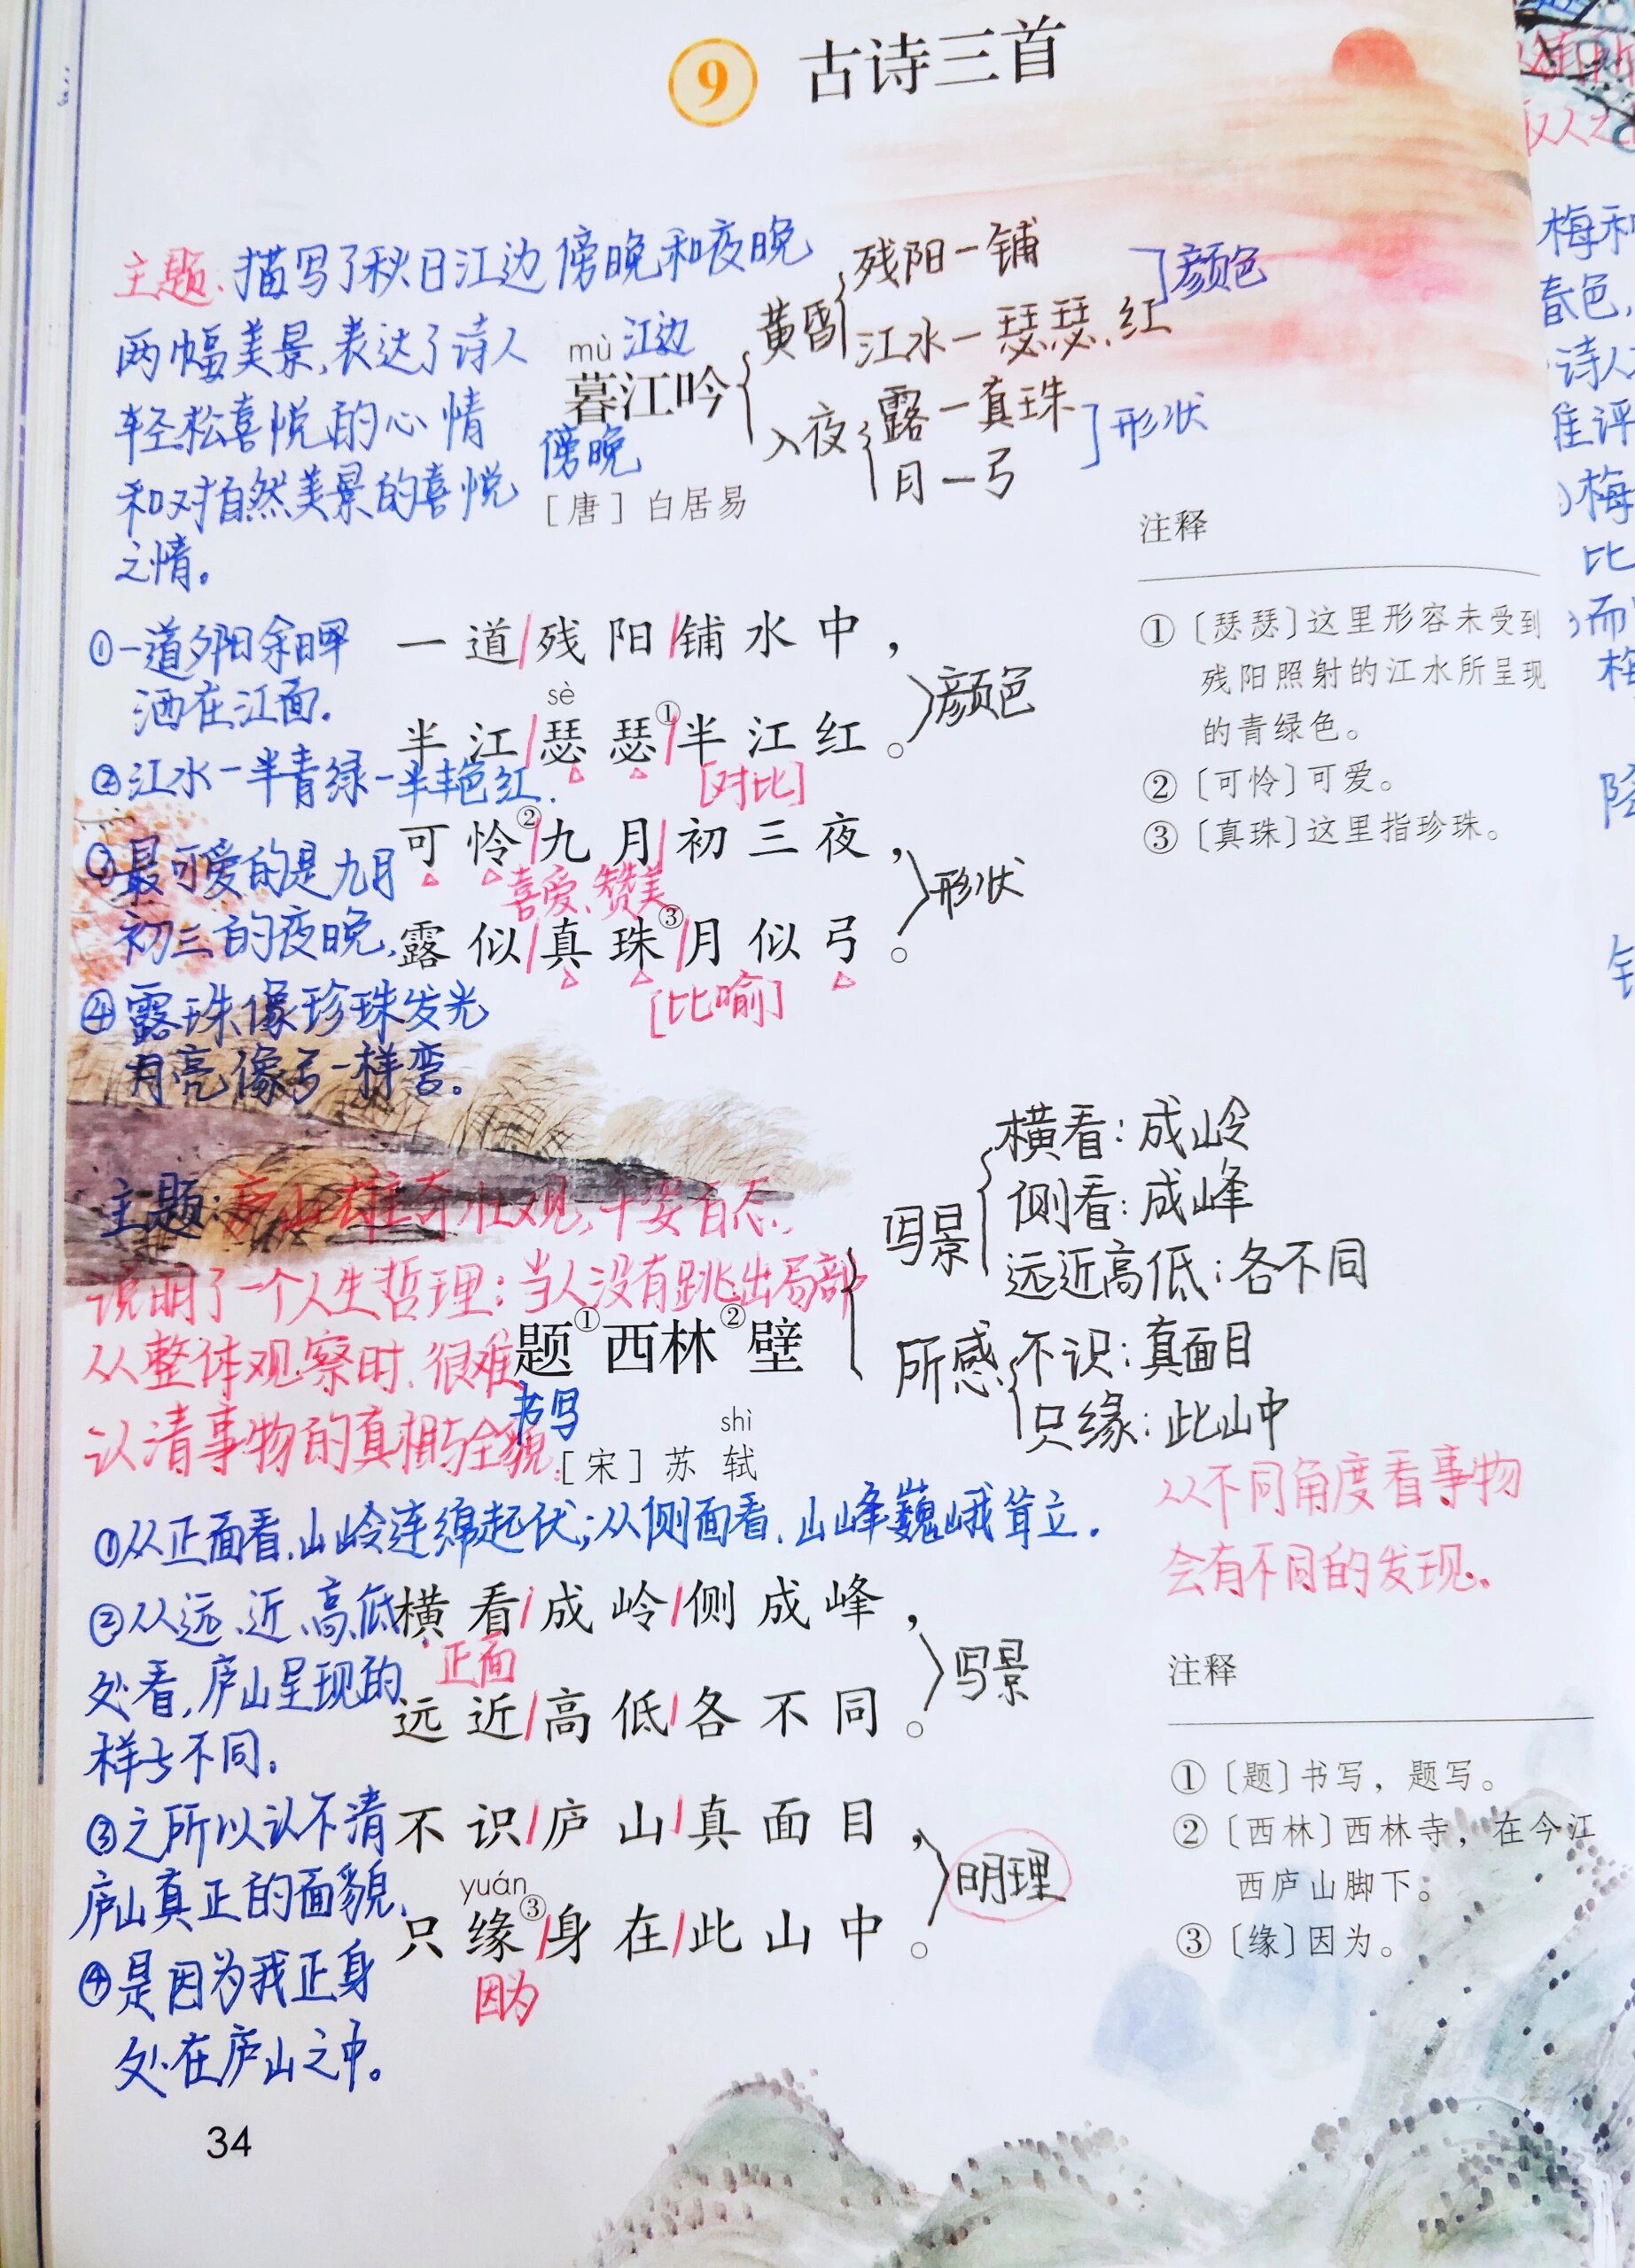 9 古诗三首
主题:描写了秋日江边傍晚和夜晚
两幅美景,表达了诗人
轻松喜悦的心情
和对自然美景的喜悦
之情。
mù 江边
暮江吟
傍晚
[唐] 白居易
黄昏
残阳一铺
江水一瑟瑟、红
]颜色
入夜
露一真珠
月一弓
]形状
注释
①〔瑟瑟〕这里形容未受到
残阳照射的江水所呈现
的青绿色。
②〔可怜〕可爱。
③〔真珠〕这里指珍珠。
①一道夕阳余晖
洒在江面.
②江水一半青绿一半艳红.
③最可爱的是九月
初三的夜晚,
④露珠像珍珠发光
月亮像弓一样弯。
一道/残阳/铺水中，
sè
半江/瑟瑟①/半江红。
颜色
[对比]
可怜②/九月/初三夜，
喜爱、赞美
露似/真珠③/月似弓。
形状
[比喻]
主题:庐山雄奇壮观,千姿百态.,
说明了一个人生哲理:当人没有跳出局部
从整体观察时,很难
认清事物的真相与全貌.
题①西林②壁
书写
shì
[宋] 苏轼
写景
横看:成岭
侧看:成峰
远近高低:各不同
所感
不识:真面目
只缘:此山中
从不同角度看事物
会有不同的发现。
①从正面看,山岭连绵起伏;从侧面看,山峰巍峨耸立.
②从远、近、高、低
处看,庐山呈现的
样子不同.
③之所以认不清
庐山真正的面貌,
④是因为我正身
处在庐山之中。
横看/成岭/侧成峰，
正面
远近/高低/各不同。
写景
不识/庐山/真面目，
yuán
只缘③/身在/此山中。
明理
因为
注释
①〔题〕书写，题写。
②〔西林〕西林寺，在今江
西庐山脚下。
③〔缘〕因为。
34
梅和
春色,
诗人
评
梅
比
而
梅